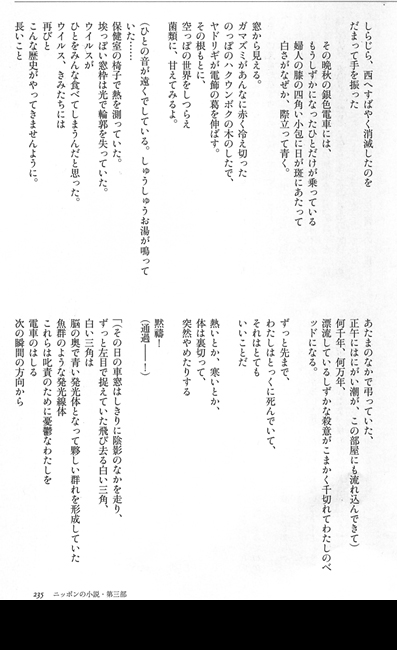 しらじら、西へすばやく消滅したのを
だまって手を振った
その晩秋の銀色電車には、
もうしずかになったひとだけが乗っている
婦人の膝の四角い小包に日が斑にあたって
白さがなぜか、際立って青く。
窓から見える。
ガマズミがあんなに赤く冷え切った
のっぽのハクウンボクの木のしたで、
ヤドリギが電飾の蔓を伸ばす。
その根もとに、
空っぽの世界をしつらえ
菌類に、甘えてみるよ。
(ひとの音が遠くでしている。しゅうしゅうお湯が鳴って
いた……
保健室の椅子で熱を測っていた。
埃っぽい窓枠は光で輪郭を失っていた。
ウイルスが
ひとをみんな食べてしまうんだと思った。
ウイルス、きみたちには
再びと
こんな歴史がやってきませんように。
長いこと
あたまのなかで弔っていた、
正午にはにがい潮が、この部屋にも流れ込んできて)
何千年、何万年、
漂流しているしずかな殺意がこまかく千切れてわたしのベ
ッドになる。
ずっと先まで、
わたしはとっくに死んでいて、
それはとても
いいことだ
熱いとか、寒いとか、
体は裏切って、
突然やめたりする
黙禱!
(通過――!)
「(その日の車窓はしきりに陰影のなかを走り、
ずっと左目で捉えていた飛び去る白い三角、
白い三角は
脳の奥で青い発光体となって夥しい群れを形成していた
魚群のような発光線体
これらは叱責のために憂鬱なわたしを
電車のはしる
次の瞬間の方向から
235 ニッポンの小説・第三部